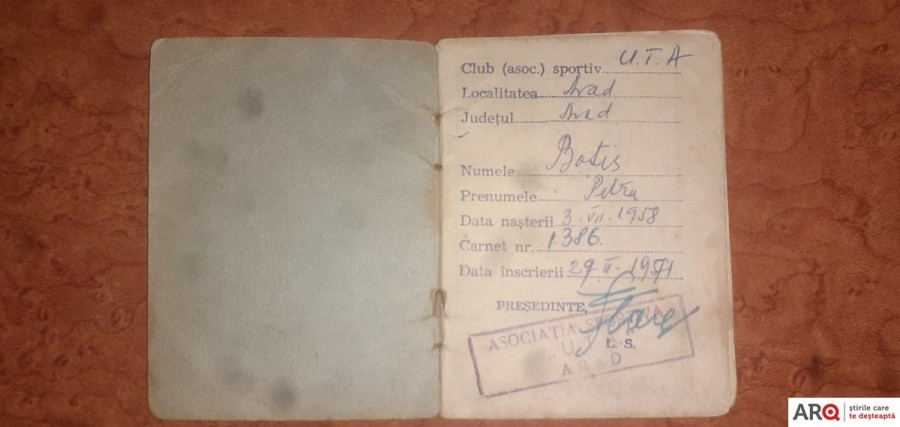 Club (asoc.) sportiv U.T.A
Localitatea Arad
Județul Arad
Numele Botiș
Prenumele Petru
Data nașterii 3.VII.1958
Carnet nr. 1386.
Data înscrierii 29.II.1971
PREȘEDINTE,
L. S.
ASOCIAȚIA SPORTIVĂ
U.T.A.
ARAD
ARQ știrile care
te deșteaptă